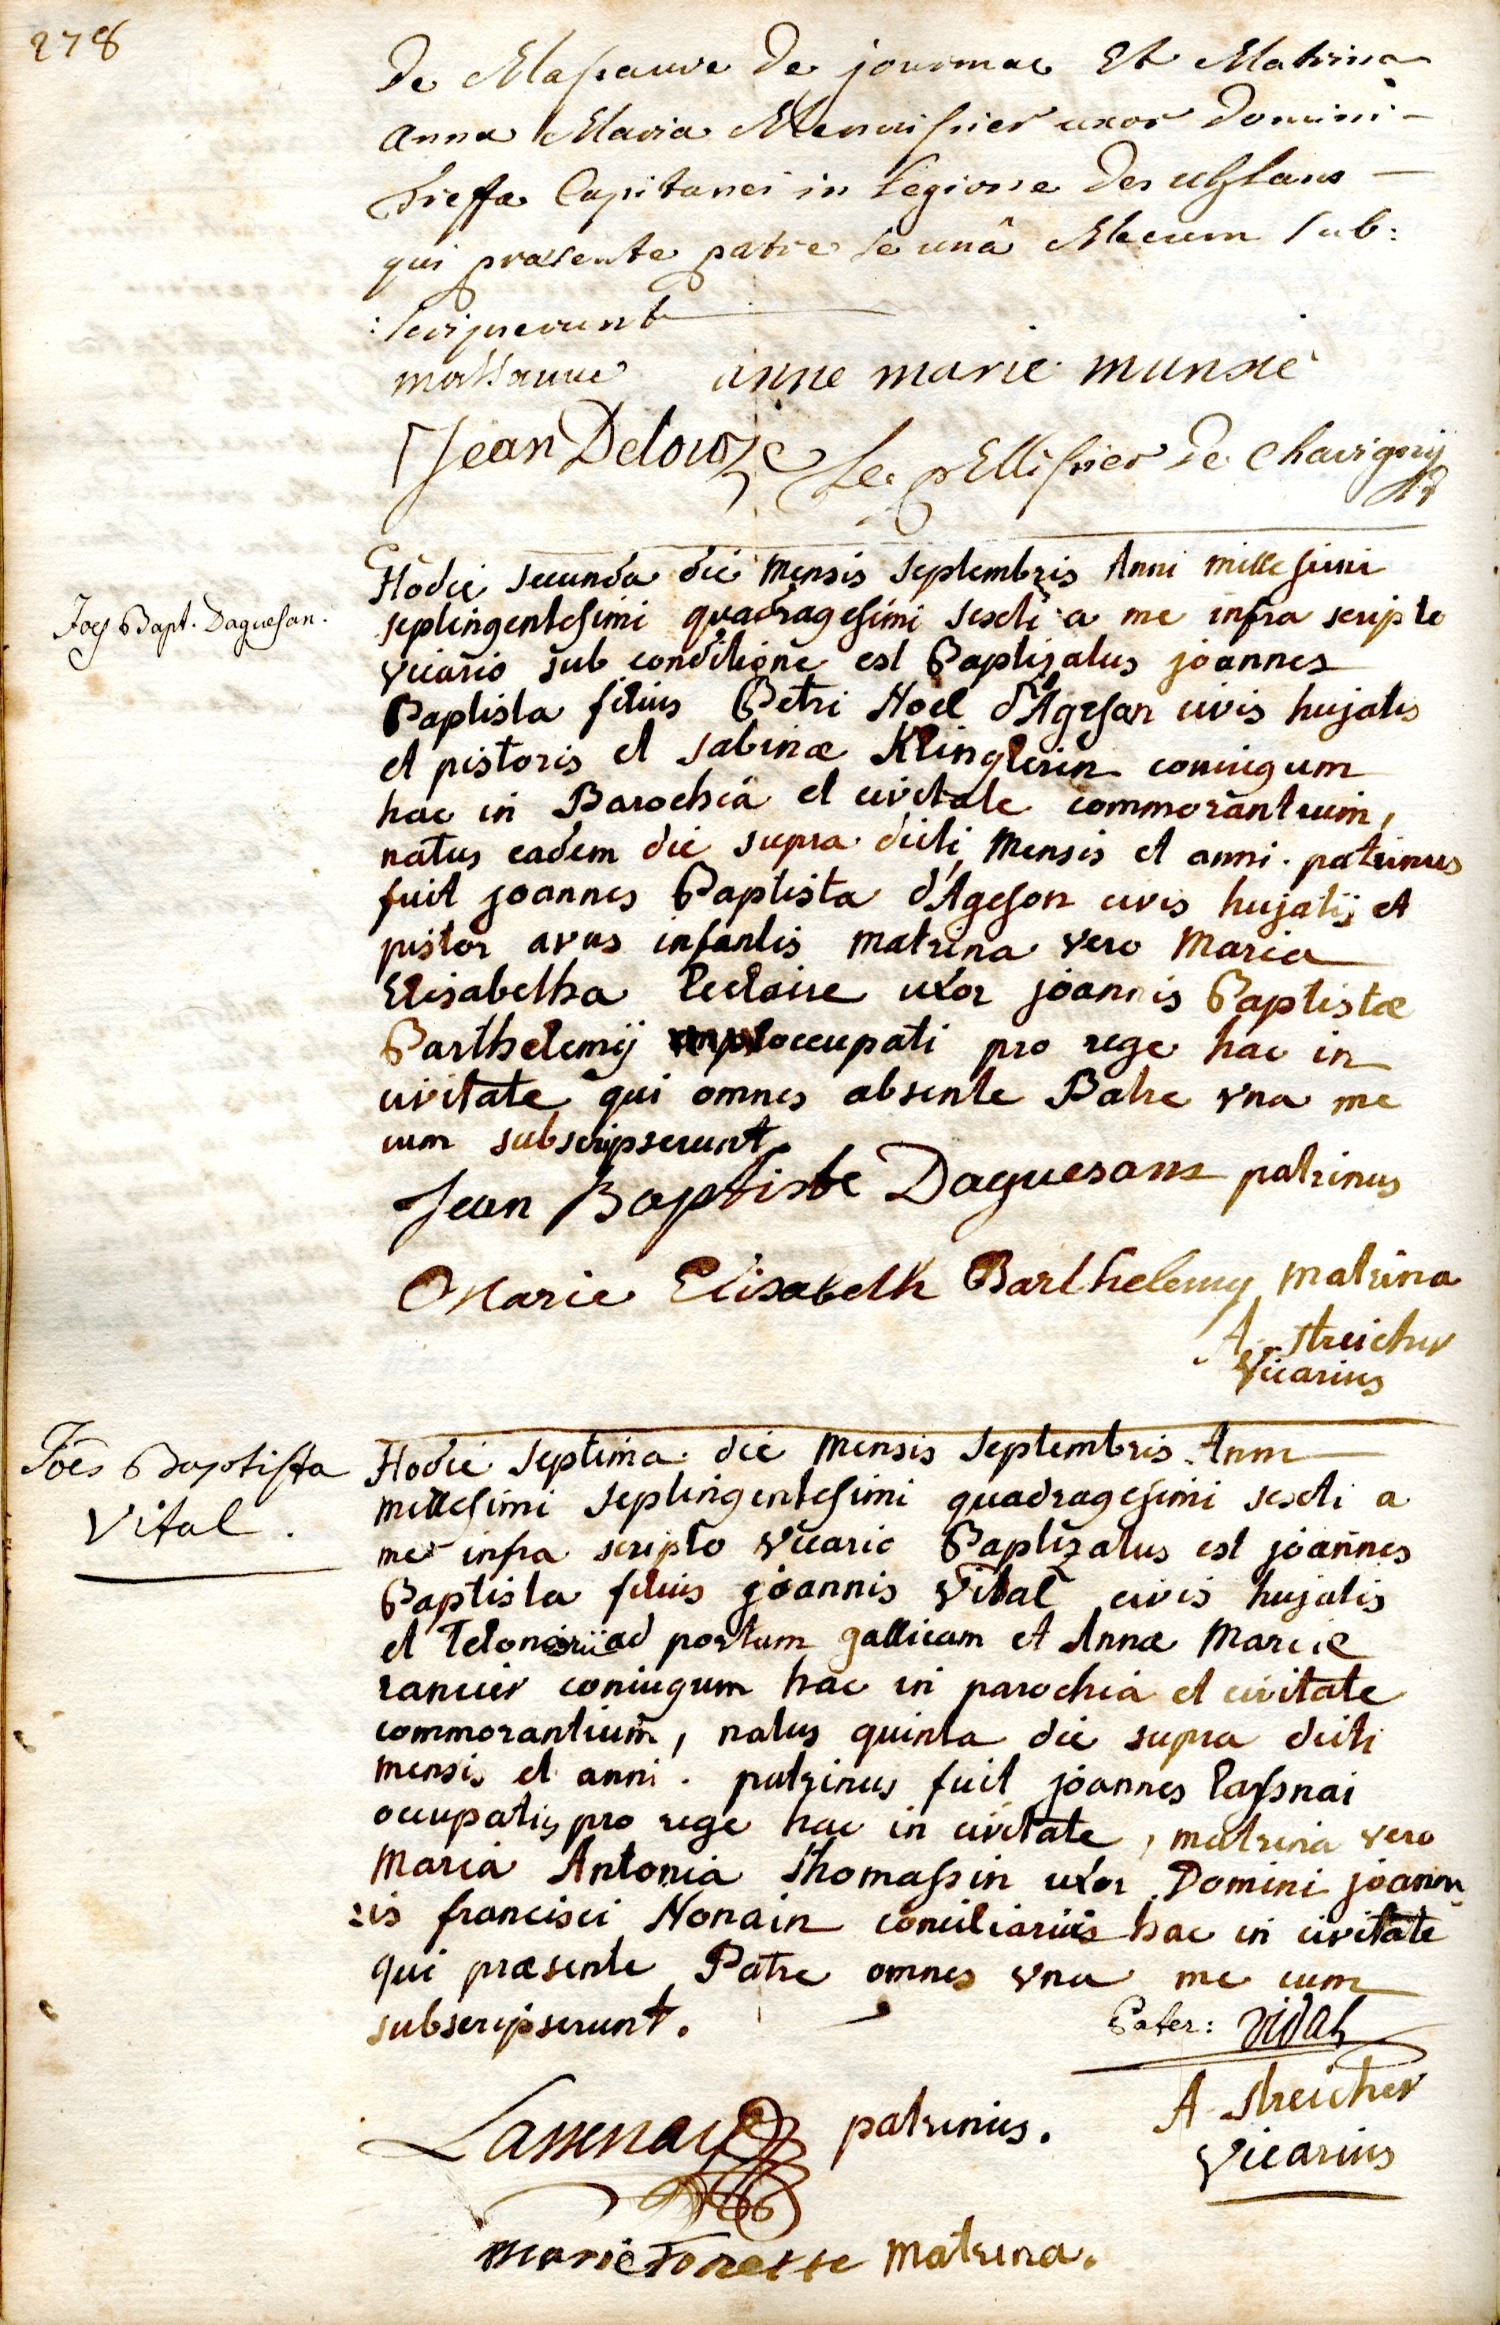 278
de Massauve de journac Et Matrina
Anna Maria Menuissier uxor Domini
Drieffa Capitanei in Legione des uhlans
qui præsente patre se unâ Mecum sub:
:scripserunt
massauve anne marie munsié
Jean Delouze Le pellissier de Chavigny
Joes Bapt. Daguesan.
Hodie secunda die Mensis Septembris Anni millesimi
septingentesimi quadragesimi sexti a me infra scripto
vicario sub conditione est Baptizatus joannes
Baptista filius Petri Noel d'Agesan civis hujatis
et pistoris et Sabinæ Klinglerin coniugum
hac in Barochiâ et civitate commorantium,
natus eadem die supra dicti Mensis et anni. patrinus
fuit joannes Baptista d'Ageson civis hujatis et
pistor avus infantis matrina vero Maria
Elisabetha Leclaire uxor joannis Baptistæ
Barthelemij occupati pro rege hac in
civitate qui omnes absente Patre vna me
cum subscripserunt
Jean Baptiste Daguesans patrinus
Marie Elisabeth Barthelemy matrina
A. Streicher
Vicarius
Joes Baptista
Vital.
Hodie Septima die Mensis Septembris Anni
millesimi septingentesimi quadragesimi sexti a
me infra scripto vicario Baptizatus est joannes
Baptista filius joannis Vital civis hujatis
et Telonarii ad portam gallicam et Annæ Mariæ
rancier coniugum hac in parochia et civitate
commorantium, natus quinta die supra dicti
mensis et anni. patrinus fuit joannes Lassnai
occupatis pro rege hac in civitate, matrina vero
Maria Antonia Thomassin uxor Domini joann
nis francisci Nonain conciliariis hac in civitate
qui præsente Patre omnes vna me cum
subscripserunt.
Pater: vidal
Lassenay patrinus.
A Streicher
Vicarius
Matrina.